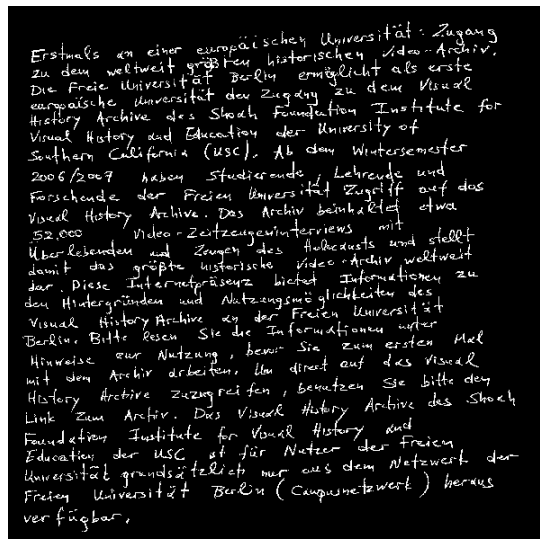 Erstmals an einer europäischen Universität: Zugang
zu dem weltweit größten historischen Video-Archiv.
Die Freie Universität Berlin ermöglicht als erste
europäische Universität den Zugang zu dem Visual
History Archive des Shoah Foundation Institute for
Visual History and Education der University of
Southern California (USC). Ab dem Wintersemester
2006/2007 haben Studierende, Lehrende und
Forschende der Freien Universität Zugriff auf das
Visual History Achive. Das Archiv beinhaltet etwa
52.000 Video-Zeitzeugeninterviews mit
Überlebenden und Zeugen des Holocausts und stellt
damit das größte historische Video-Archiv weltweit
dar. Diese Internetpräsenz bietet Informationen zu
den Hintergründen und Nutzungsmöglichkeiten des
Visual History Archive an der Freien Universität
Berlin. Bitte lesen Sie die Informationen unter
Hinweise zur Nutzung, bevor Sie zum ersten Mal
mit dem Archiv arbeiten. Um direkt auf das Visual
History Archive zuzugreifen, benutzen Sie bitte den
Link zum Archiv. Das Visual History Archive des Shoah
Foundation Institute for Visual History and
Education der USC ist für Nutzer der Freien
Universität grundsätzlich nur aus dem Netzwerk der
Freien Universität Berlin (Campusnetzwerk) heraus
verfügbar.